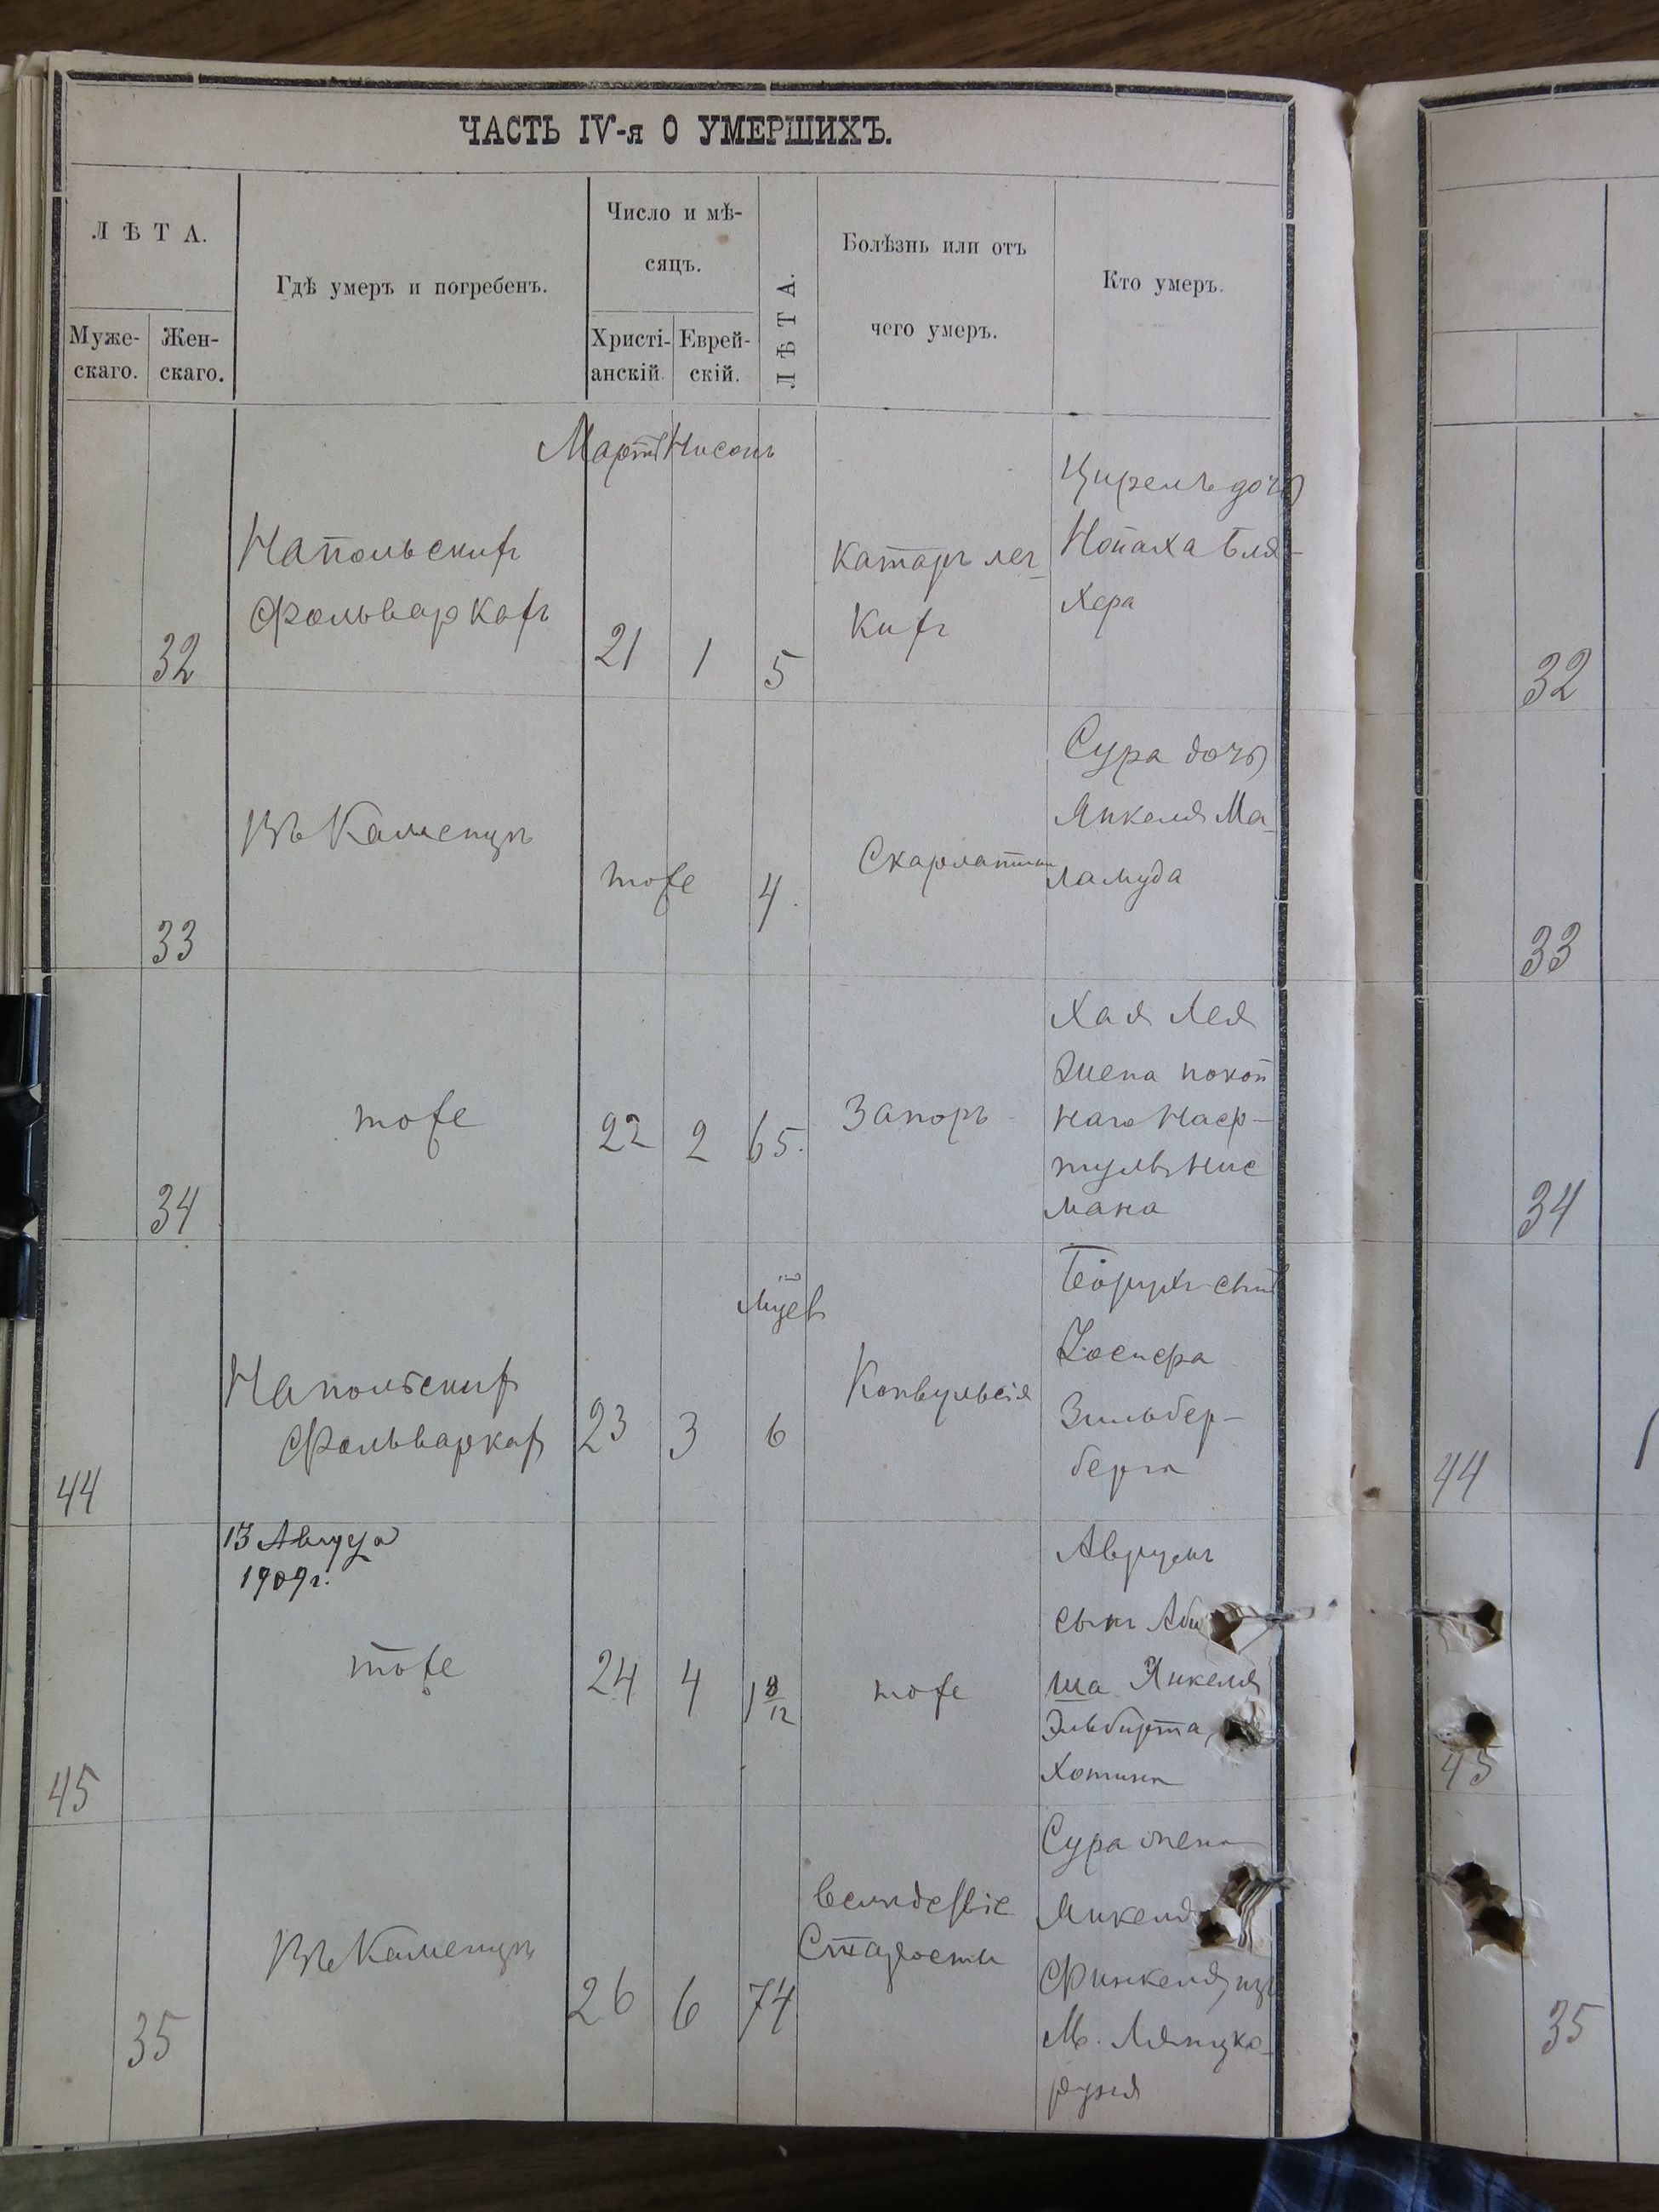 ЧАСТЬ IV-я О УМЕРШИХЪ.
ЛѢТА.
Муже-
скаго.
Жен-
скаго.
Гдѣ умеръ и погребенъ.
Число и мѣ-
сяцъ.
Христі-
анскій.
Еврей-
скій.
ЛѢТА.
Болѣзнь или отъ
чего умеръ.
Кто умеръ.
Мартъ Нисонъ
32
На польскихъ
фольваркахъ
21
1
5
Катаръ лег-
кихъ
Цирель дочь
Нопаха Бля-
хера
32
33
Въ Каменцѣ
тоже
4
Скарлатина
Сура дочь
Янкеля Ма-
ламуда
33
34
тоже
22
2
65
Запоръ
Хая Лея
жена покой
наго Наф-
туля Нис
мана
34
44
На польскихъ
фольваркахъ
23
3
6
Конвульсія
сынъ
Йосифа
Зильбер-
берга
44
13 Августа
1909 г.
45
тоже
24
4
1 8/12
тоже
Аврумъ
сынъ Аби
ша Янкеля
Эльбирта,
Хотина
45
35
Въ Каменцѣ
26
6
74
вслѣдствіе
Старости
Сура жена
Янкеля
Финкеля, изъ
М. Лянцко-
руня
35